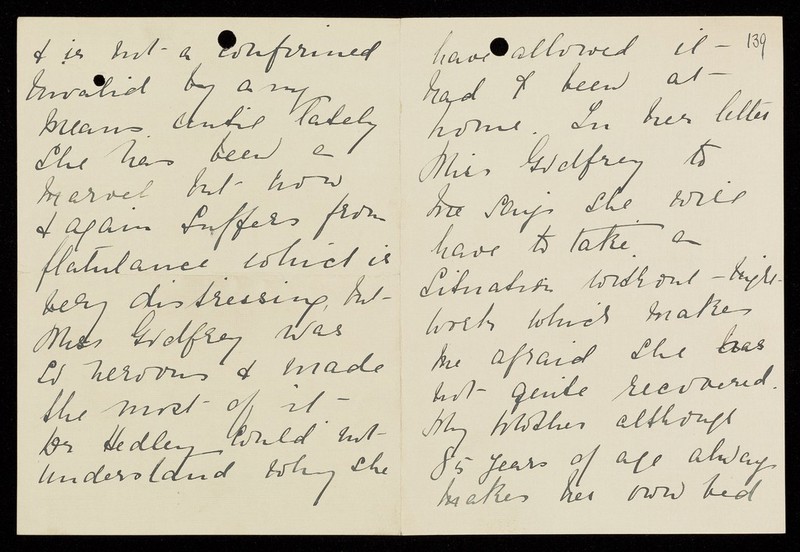 & is not a confirmed
Invalid by any
means. Until lately
She has been a
marvel but now
& again Suffers from
flatulance which is
very distressing, but
Miss Godfrey was
so nervous & made
the most of it -
Dr Hedley could not
understand why she
139
have allowed it -
had I been at
home. In her letter
Miss Godfrey to
me says she will
have to take a
Situation without night-
work which makes
me afraid she has
not quite recovered.
My Mother although
85 years of age always
makes her own bed